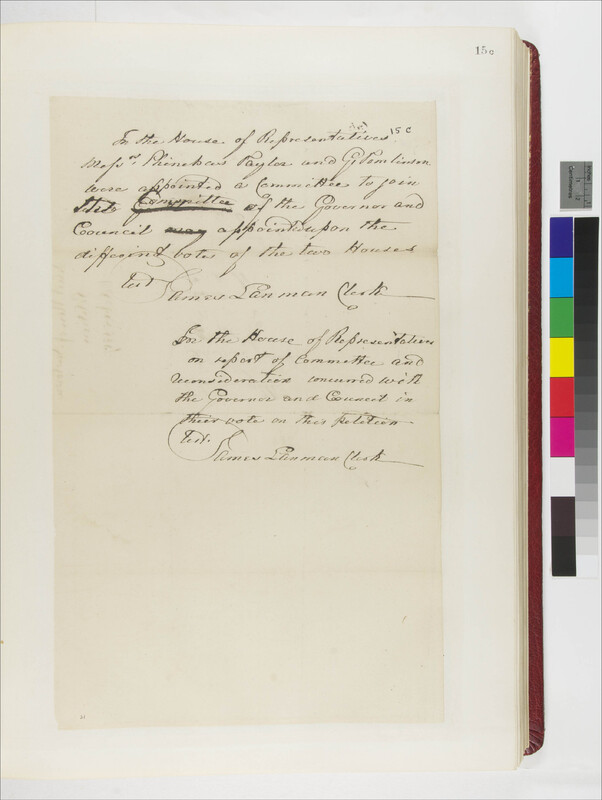 15c
15 c
In the House of Representatives
Mess.rs Phinehas Taylor and G Tomlinson
were appointed a Committee to join
the Committee of the Governor and
Council may appoint upon the
differing votes of the two Houses
Test James Lanman Clerk
In the House of Representatives
on report of Committee and
reconsideration concurred with
the Governor and Council in
their vote on this petition
Test.
James Lanman Clerk